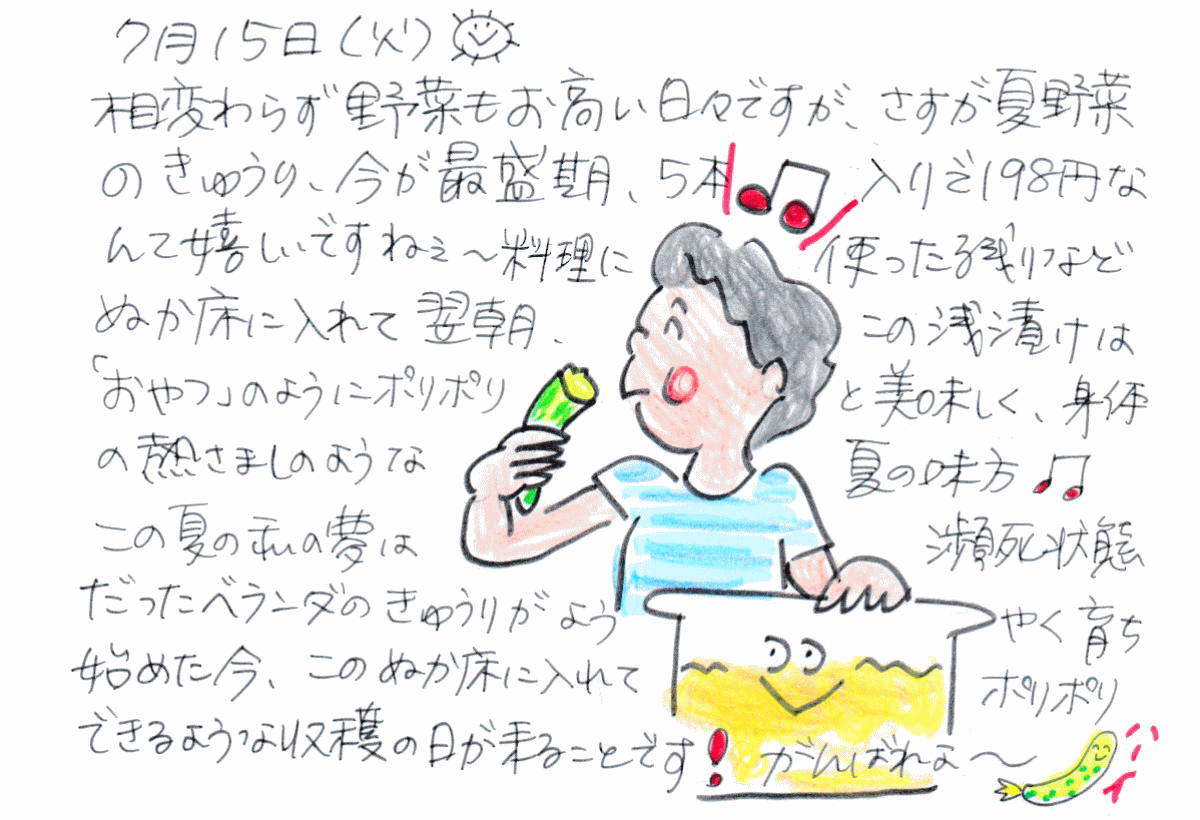 7月15日(火)
相変わらず野菜もお高い日々ですが、さすが夏野菜
のきゅうり、今が最盛期、5本入りで198円な
んて嬉しいですねぇ～料理に使った残りなど
ぬか床に入れて翌朝、この浅漬けは
「おやつ」のようにポリポリと美味しく、身体
の熱さましのような夏の味方
この夏の私の夢は瀕死状態
だったベランダのきゅうりがようやく育ち
始めた今、このぬか床に入れてポリポリ
できるような収穫の日が来ることです!がんばれよ～